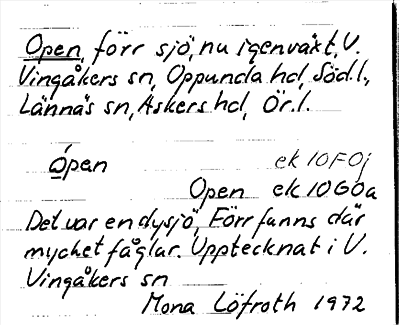 Open, förr sjö, nu igenväxt, V.
Vingåkers sn, Oppunda hd, Söd.l.,
Lännäs sn, Askers hd, Ör.l.
Ópen ek 10F0j
Open ek 10G0a
Det var en dysjö, Förr fanns där
mycket fåglar. Upptecknat i V.
Vingåkers sn
Mona Löfroth 1972